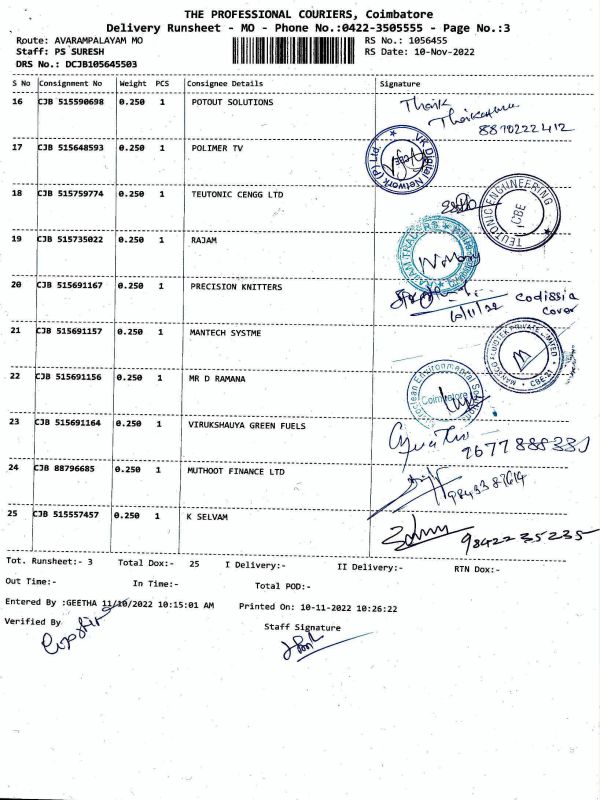 THE PROFESSIONAL COURIERS, Coimbatore
Delivery Runsheet - MO - Phone No.:0422-3505555 - Page No.:3
Route: AVARAMPALAYAM MO RS No.: 1056455
Staff: PS SURESH RS Date: 10-Nov-2022
DRS No.: DCJB105645503
S No Consignment No Weight PCS Consignee Details Signature
16 CJB 515590698 0.250 1 POTOUT SOLUTIONS
8870222412
17 CJB 515648593 0.250 1 POLIMER TV
VK Digital Network (P) Ltd.
18 CJB 515759774 0.250 1 TEUTONIC CENGG LTD
TEUTONIC ENGINEERING
CBE
19 CJB 515735022 0.250 1 RAJAM
RAJAM TRADERS
20 CJB 515691167 0.250 1 PRECISION KNITTERS
10/11/22 Codissia
cover
21 CJB 515691157 0.250 1 MANTECH SYSTME
PRIVATE LIMITED
22 CJB 515691156 0.250 1 MR D RAMANA
Environmental
Coimbatore
23 CJB 515691164 0.250 1 VIRUKSHAUYA GREEN FUELS
24 CJB 88796685 0.250 1 MUTHOOT FINANCE LTD
25 CJB 515557457 0.250 1 K SELVAM
9842235235
Tot. Runsheet:- 3 Total Dox:- 25 I Delivery:- II Delivery:- RTN Dox:-
Out Time:- In Time:- Total POD:-
Entered By :GEETHA 11/10/2022 10:15:01 AM Printed On: 10-11-2022 10:26:22
Verified By Staff Signature